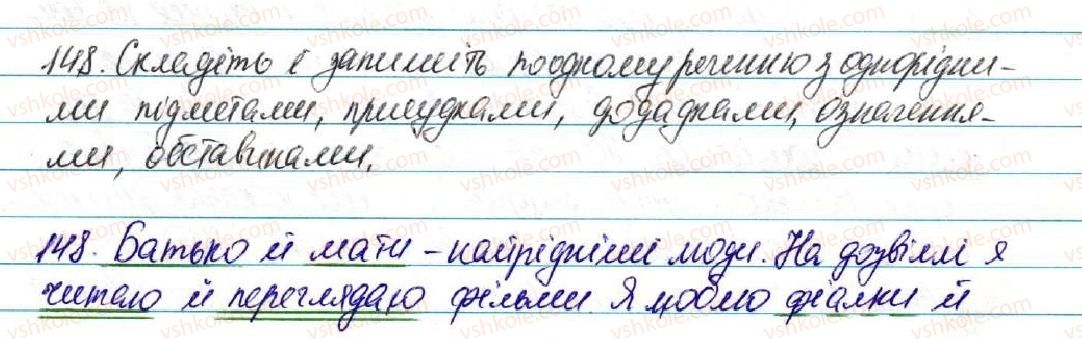 148. Складіть і запишіть по одному реченню з однорідни-
ми підметами, присудками, додадками, означення-
ми, обставинами.
148. Батько й мати - найрідніші люди. На дозвіллі я
читаю й переглядаю фільми. Я люблю фіалки й